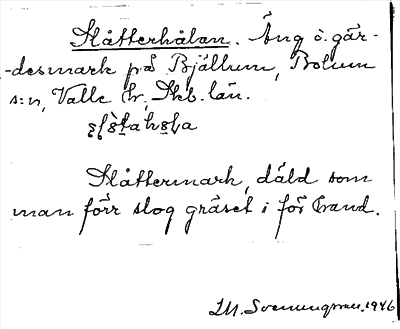 Slåtterhålan. Äng o. går-
-desmark på Bjällum, Bolum
s:n, Valle hr, Skb. län.
Slåttermark, däld som
man förr slog gräset i för hand.
I.M. Svenungsson. 1946